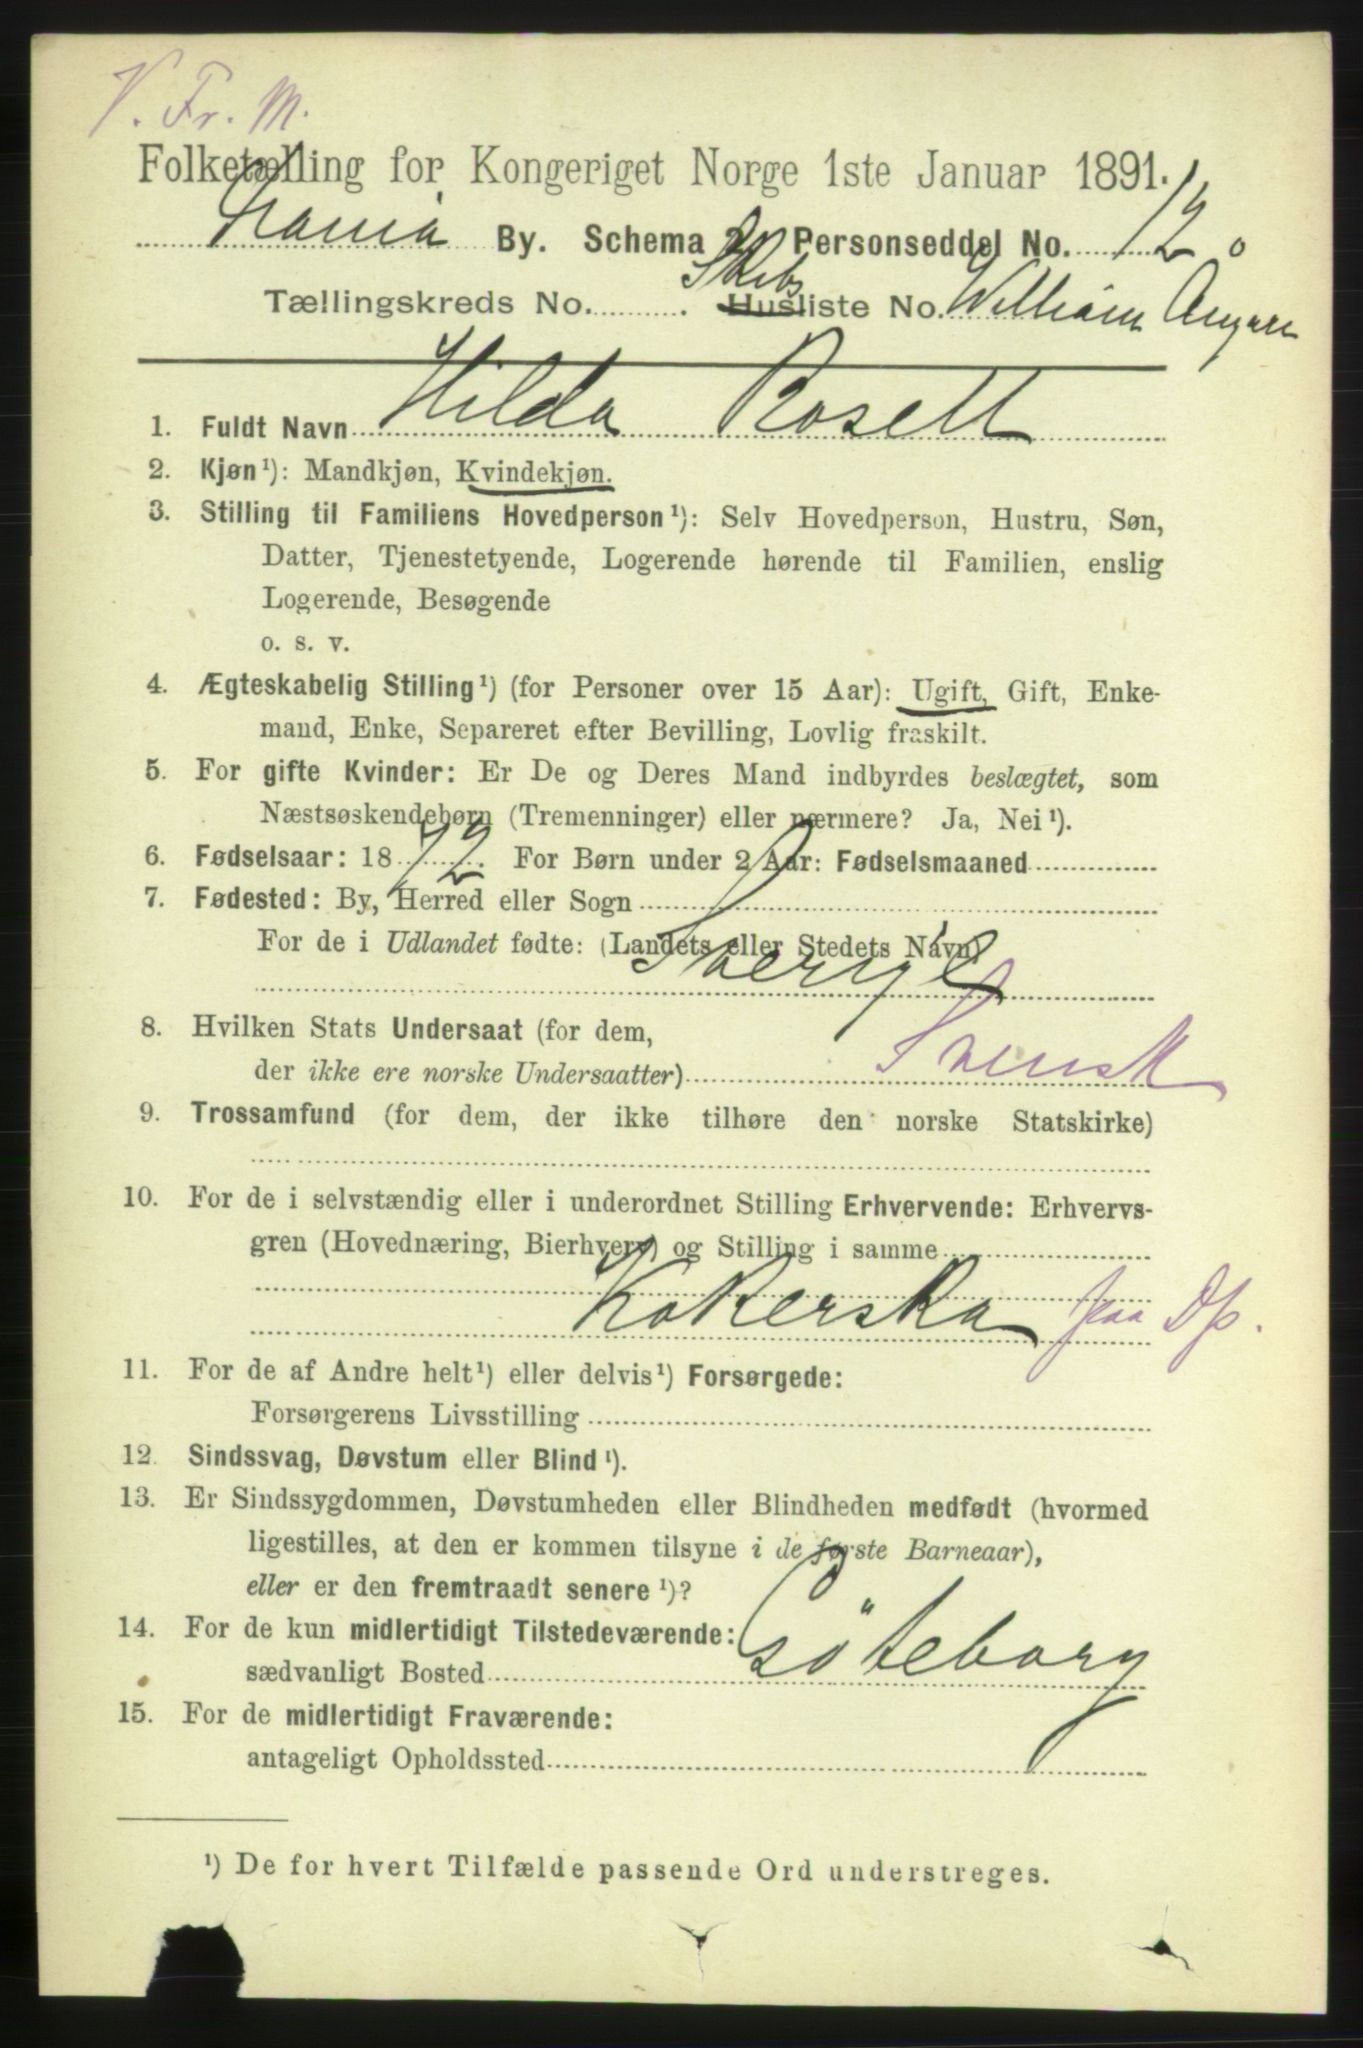 V. Fr. M.
Folketælling for Kongeriget Norge 1ste Januar 1891.
By. Schema 2. Personseddel No. 12.
Tællingskreds No. . Skibs Husliste No. William
1. Fuldt Navn Hilda Rosell
2. Kjøn¹): Mandkjøn, Kvindekjøn.
3. Stilling til Familiens Hovedperson¹): Selv Hovedperson, Hustru, Søn,
Datter, Tjenestetyende, Logerende hørende til Familien, enslig
Logerende, Besøgende
o. s. v.
4. Ægteskabelig Stilling¹) (for Personer over 15 Aar): Ugift, Gift, Enke-
mand, Enke, Separeret efter Bevilling, Lovlig fraskilt.
5. For gifte Kvinder: Er De og Deres Mand indbyrdes beslægtet, som
Næstsøskendebørn (Tremenninger) eller nærmere? Ja, Nei¹).
6. Fødselsaar: 1872. For Børn under 2 Aar: Fødselsmaaned
7. Fødested: By, Herred eller Sogn
For de i Udlandet fødte: (Landets eller Stedets Navn)
Sverige
8. Hvilken Stats Undersaat (for dem,
der ikke ere norske Undersaatter) Svensk
9. Trossamfund (for dem, der ikke tilhøre den norske Statskirke)
10. For de i selvstændig eller i underordnet Stilling Erhvervende: Erhvervs-
gren (Hovednæring, Bierhverv) og Stilling i samme
Kokerska paa D/s.
11. For de af Andre helt¹) eller delvis¹) Forsørgede:
Forsørgerens Livsstilling
12. Sindssvag, Døvstum eller Blind¹).
13. Er Sindssygdommen, Døvstumheden eller Blindheden medfødt (hvormed
ligestilles, at den er kommen tilsyne i de første Barneaar),
eller er den fremtraadt senere¹)?
14. For de kun midlertidigt Tilstedeværende:
sædvanligt Bosted Göteborg
15. For de midlertidigt Fraværende:
antageligt Opholdssted
¹) De for hvert Tilfælde passende Ord understreges.